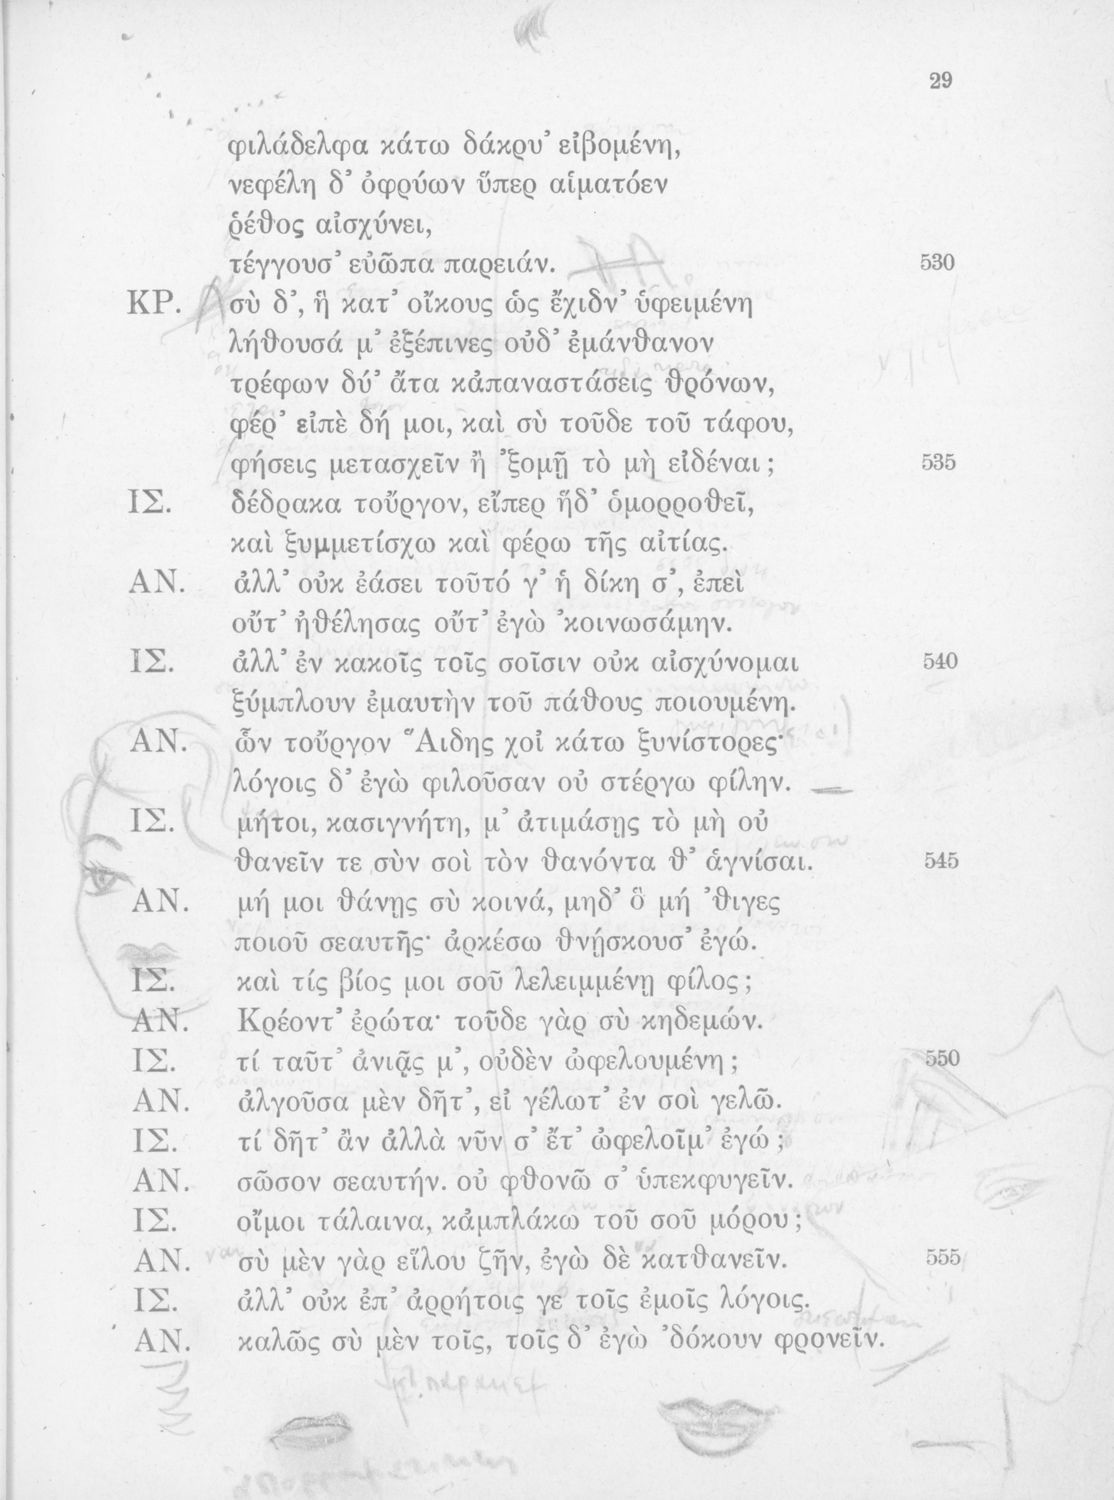 29
φιλάδελφα κάτω δάκρυ’ εἰβομένη,
νεφέλη δ’ ὀφρύων ὕπερ αἱματόεν
ῥέθος αἰσχύνει,
τέγγουσ’ εὐῶπα παρειάν. 530
ΚΡ. σὺ δ’, ἣ κατ’ οἴκους ὡς ἔχιδν’ ὑφειμένη
λήθουσά μ’ ἐξέπινες οὐδ’ ἐμάνθανον
τρέφων δύ’ ἄτα κἀπαναστάσεις θρόνων,
φέρ’ εἰπὲ δή μοι, καὶ σὺ τοῦδε τοῦ τάφου,
φήσεις μετασχεῖν ἢ ’ξομῇ τὸ μὴ εἰδέναι; 535
ΙΣ. δέδρακα τοὔργον, εἴπερ ἥδ’ ὁμορροθεῖ,
καὶ ξυμμετίσχω καὶ φέρω τῆς αἰτίας.
ΑΝ. ἀλλ’ οὐκ ἐάσει τοῦτό γ’ ἡ δίκη σ’, ἐπεὶ
οὔτ’ ἠθέλησας οὔτ’ ἐγὼ ’κοινωσάμην.
ΙΣ. ἀλλ’ ἐν κακοῖς τοῖς σοῖσιν οὐκ αἰσχύνομαι 540
ξύμπλουν ἐμαυτὴν τοῦ πάθους ποιουμένη.
ΑΝ. ὧν τοὔργον Ἅιδης χοἰ κάτω ξυνίστορες·
λόγοις δ’ ἐγὼ φιλοῦσαν οὐ στέργω φίλην.
ΙΣ. μήτοι, κασιγνήτη, μ’ ἀτιμάσῃς τὸ μὴ οὐ
θανεῖν τε σὺν σοὶ τὸν θανόντα θ’ ἁγνίσαι. 545
ΑΝ. μή μοι θάνῃς σὺ κοινά, μηδ’ ὃ μή ’θιγες
ποιοῦ σεαυτῆς· ἀρκέσω θνῄσκουσ’ ἐγώ.
ΙΣ. καὶ τίς βίος μοι σοῦ λελειμμένῃ φίλος;
ΑΝ. Κρέοντ’ ἐρώτα· τοῦδε γὰρ σὺ κηδεμών.
ΙΣ. τί ταῦτ’ ἀνιᾷς μ’, οὐδὲν ὠφελουμένη; 550
ΑΝ. ἀλγοῦσα μὲν δῆτ’, εἰ γέλωτ’ ἐν σοὶ γελῶ.
ΙΣ. τί δῆτ’ ἂν ἀλλὰ νῦν σ’ ἔτ’ ὠφελοῖμ’ ἐγώ;
ΑΝ. σῶσον σεαυτήν. οὐ φθονῶ σ’ ὑπεκφυγεῖν.
ΙΣ. οἴμοι τάλαινα, κἀμπλάκω τοῦ σοῦ μόρου;
ΑΝ. σὺ μὲν γὰρ εἵλου ζῆν, ἐγὼ δὲ κατθανεῖν. 555
ΙΣ. ἀλλ’ οὐκ ἐπ’ ἀρρήτοις γε τοῖς ἐμοῖς λόγοις.
ΑΝ. καλῶς σὺ μὲν τοῖς, τοῖς δ’ ἐγὼ ’δόκουν φρονεῖν.